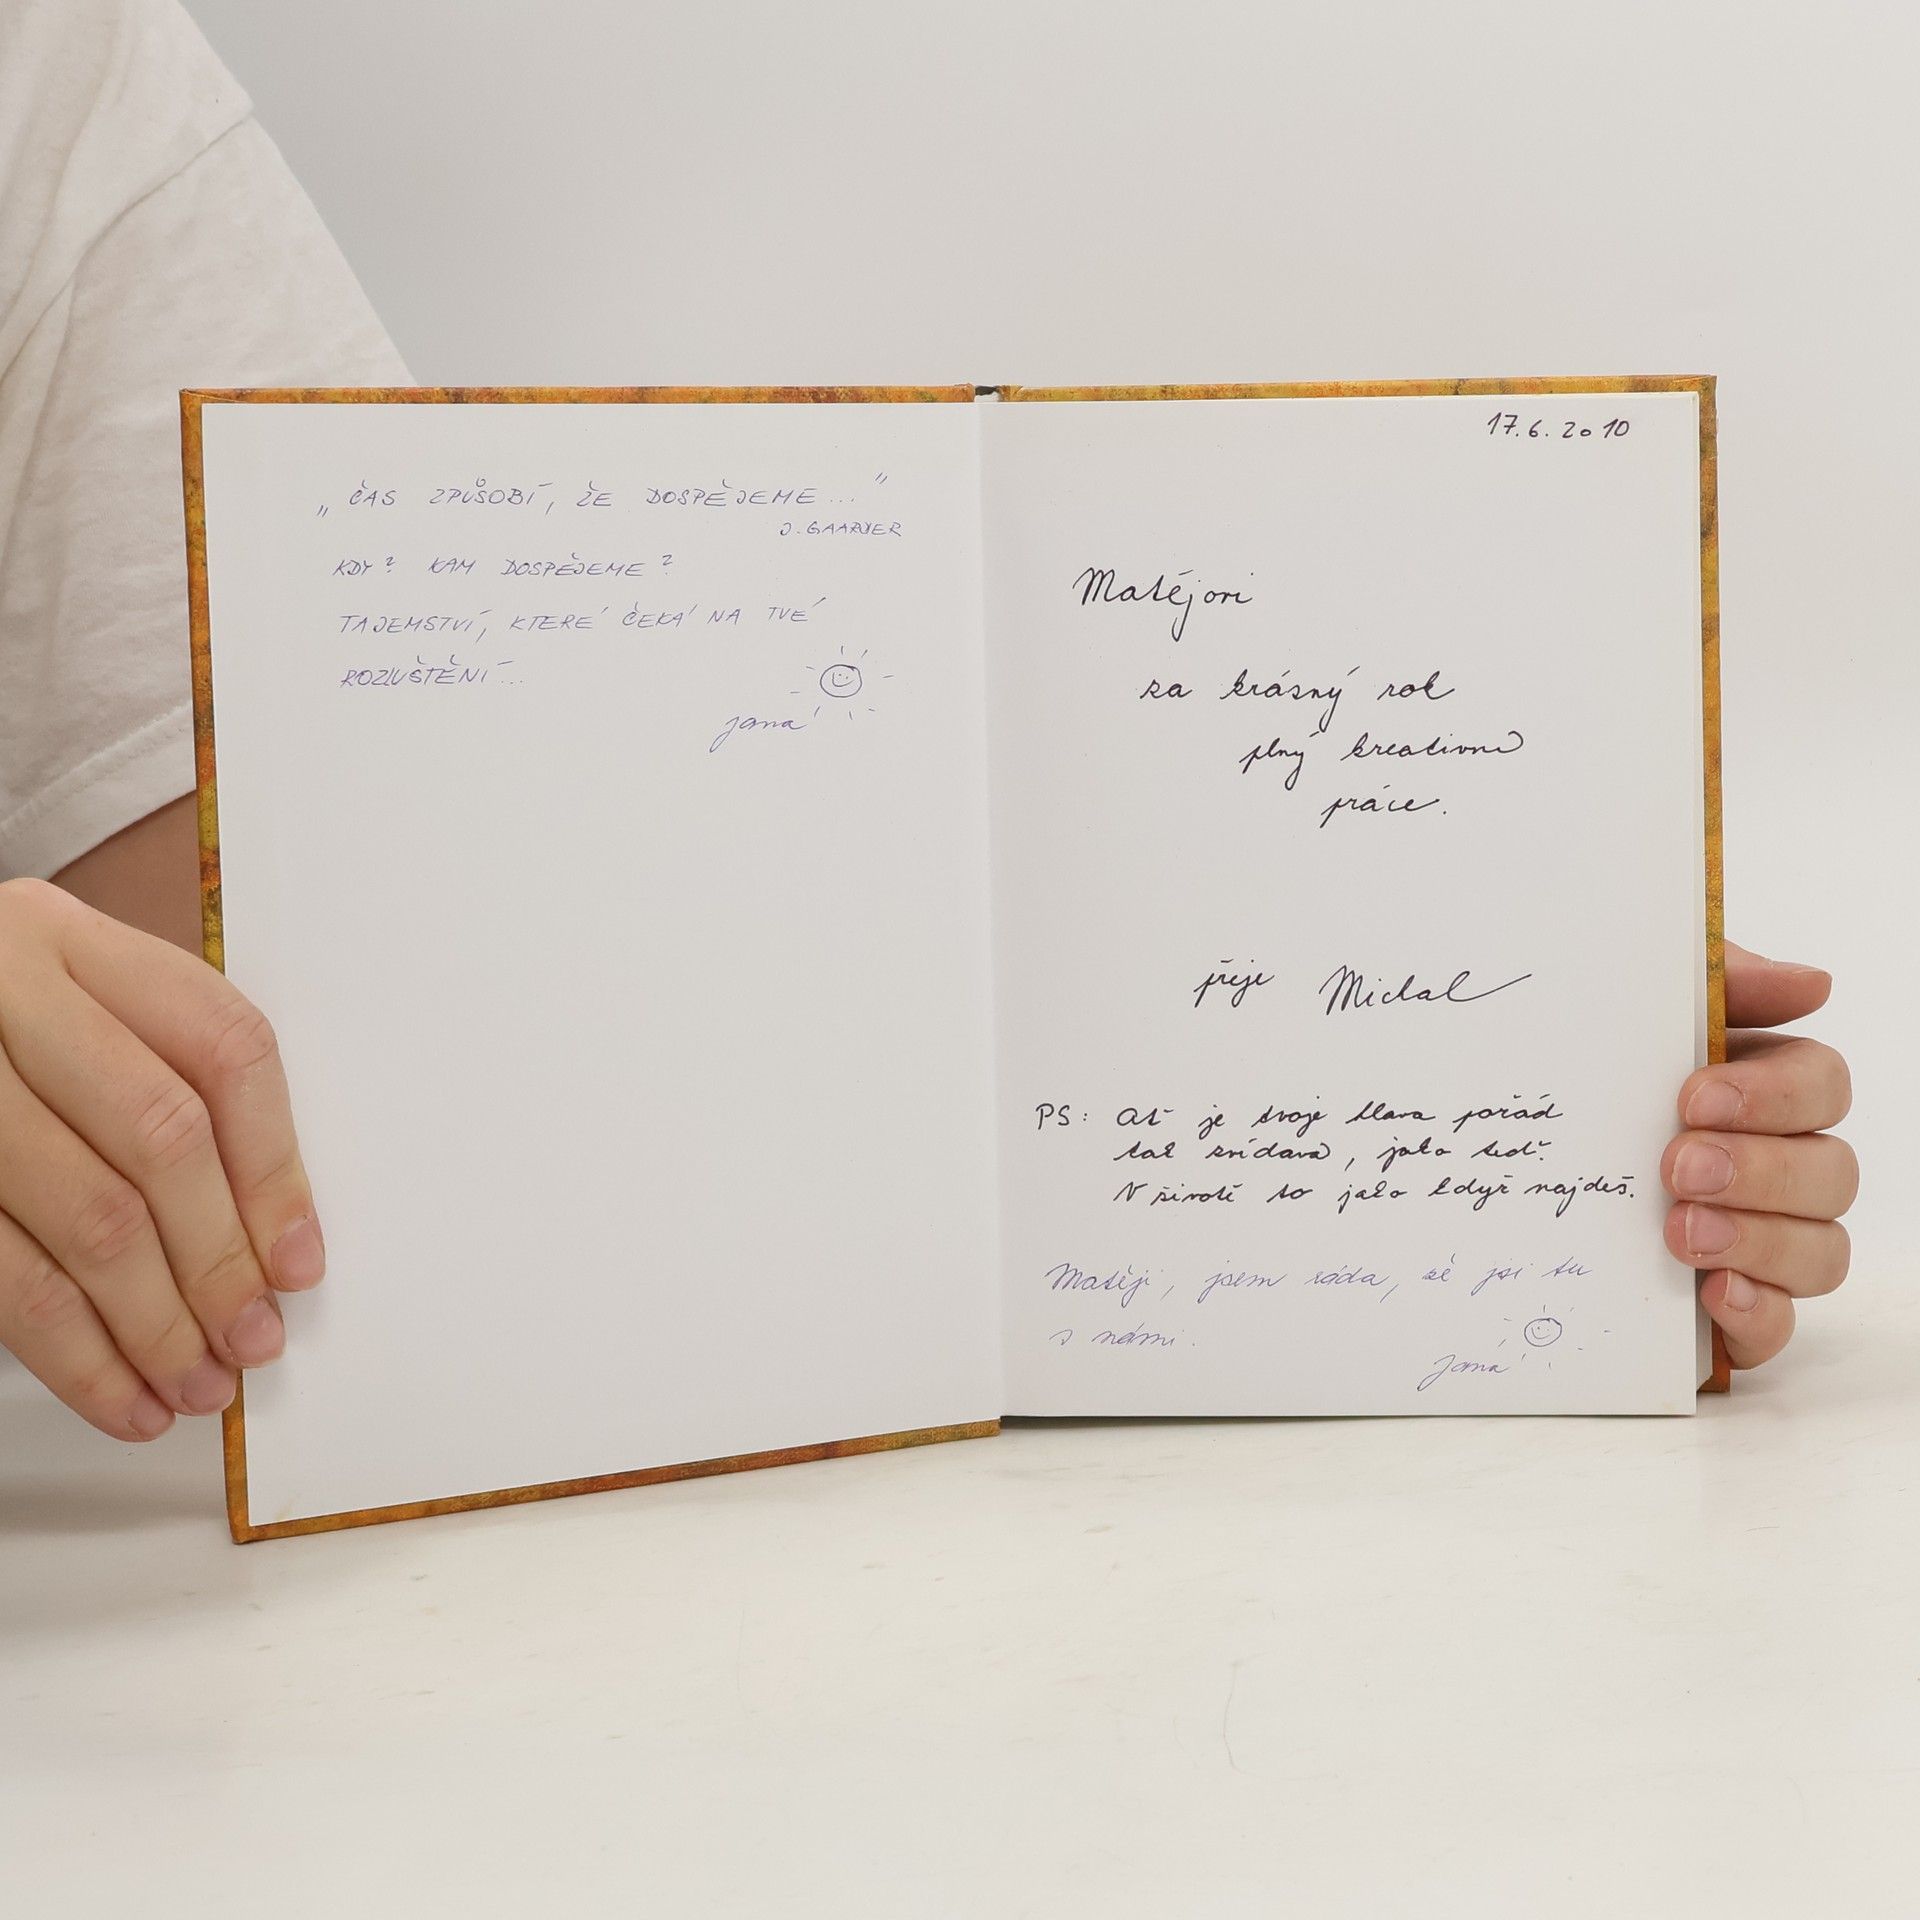 „ČAS ZPŮSOBÍ, ŽE DOSPĚJEME..."
J. GAARDER
KDY? KAM DOSPĚJEME?
TAJEMSTVÍ, KTERÉ ČEKÁ NA TVÉ
ROZLUŠTĚNÍ...
jana
17.6.2010
Matějovi
za krásný rok
plný kreativní
práce.
přeje Michal
PS: Ať je tvoje hlava pořád
tak zvídavá, jako teď.
V životě to jako když najdeš.
Matěji, jsem ráda, že jsi tu
s námi.
Jana